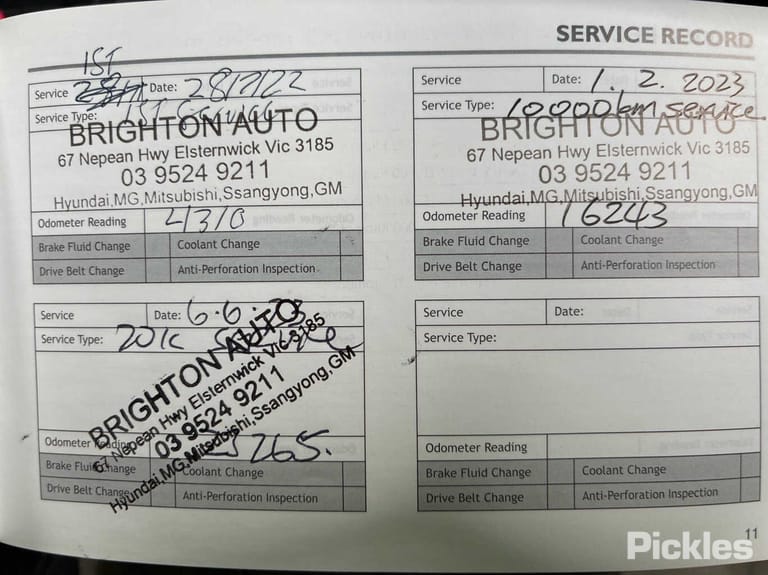 SERVICE RECORD
1ST
Service Date: 28/7/22
Service Type: 1ST
BRIGHTON AUTO
67 Nepean Hwy Elsternwick Vic 3185
03 9524 9211
Hyundai,MG,Mitsubishi,Ssangyong,GM
Odometer Reading 4310
Brake Fluid Change Coolant Change
Drive Belt Change Anti-Perforation Inspection
Service Date: 1.2.2023
Service Type: 10000km service.
BRIGHTON AUTO
67 Nepean Hwy Elsternwick Vic 3185
03 9524 9211
Hyundai,MG,Mitsubishi,Ssangyong,GM
Odometer Reading 16243
Brake Fluid Change Coolant Change
Drive Belt Change Anti-Perforation Inspection
Service Date: 6.6.23
Service Type: 20K Service
BRIGHTON AUTO
67 Nepean Hwy Elsternwick Vic 3185
03 9524 9211
Hyundai,MG,Mitsubishi,Ssangyong,GM
Odometer Reading
Brake Fluid Change Coolant Change
Drive Belt Change Anti-Perforation Inspection
Service Date:
Service Type:
Odometer Reading
Brake Fluid Change Coolant Change
Drive Belt Change Anti-Perforation Inspection
11
Pickles